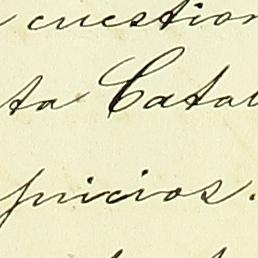 cuestion
ta Catal
picios.